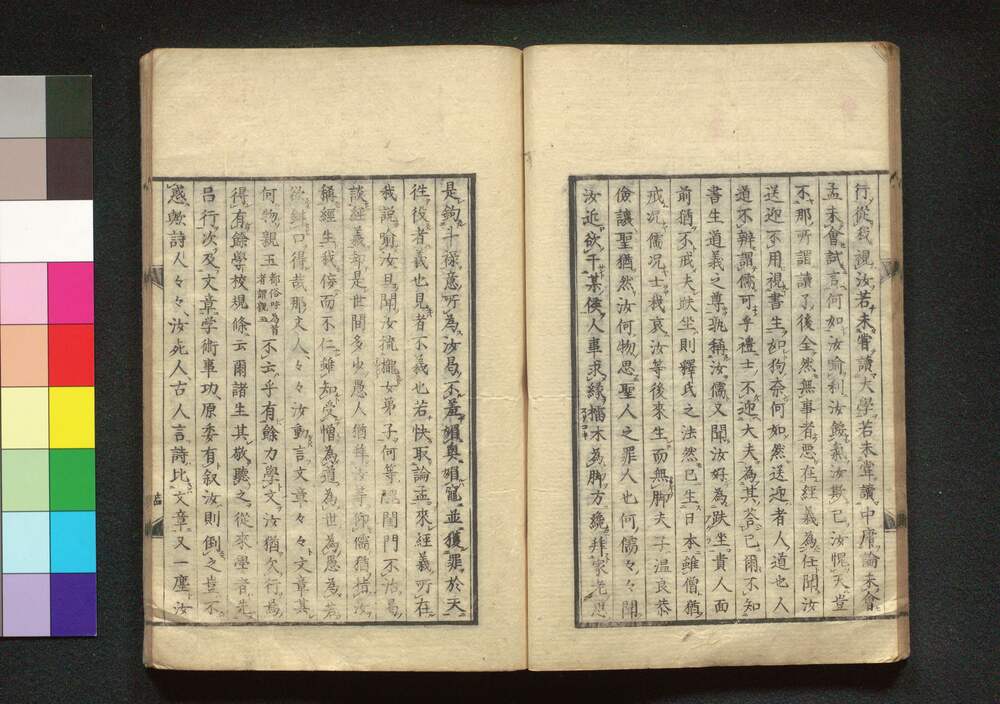 行從我視汝若未嘗讀大學若未嘗讀中庸論未會
孟未會試言何如汝喻利汝餒氣汝欺己汝慢天豈
不那所謂讀了後全然無事者惡在經義為任聞汝
送迎不用視書生如狗奈何如然送迎者人道也人
道不辨謂儒可乎禮士不迎大夫為其荅己爾不知
書生道義之尊孰稱汝儒又聞汝好為趺坐貴人面
前猶不戒夫趺坐則釋氏之法然已生日本雖僧猶
戒況儒況士我哀汝等後來生而無脚夫子温良恭
儉讓聖猶然汝何物思聖人之罪人也何儒々々聞
汝近欲干某侯人事求緣擂木為脚方纔拜家老
是鉤十襟意所為汝曷不羞媚奧媚竈並獲罪於天
徃彼者義也見者不義也若快取論孟來經義所在
我説喻汝旦聞汝挑女弟子何等閨門不治曷
談經義却是世間多少愚人猶拜汝等師儒猶
稱經生我傍而不仁雖知受憎為道為世為愚為若
欲緘口得哉那文人々々汝動言文章々々文章其
何物親玉都俗呼為首者謂親玉不云乎有餘力學文汝猶欠行焉
得有餘學校規條云爾諸生其敬聽之從來學者先
吕行次及文章學術事功原委有叙汝則倒之豈不
惑歟詩人々々汝死人古人言詩比文章又一塵汝